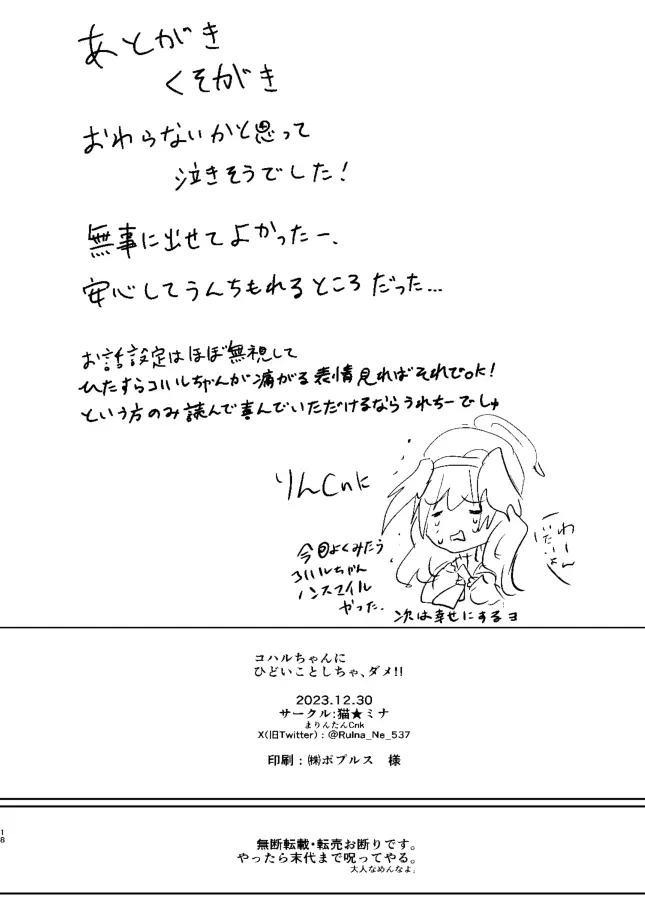 あとがき
くそがき
おわらないかと思って
泣きそうでした!
無事に出せてよかったー、
安心してうんちもれるところだった...
お話設定はほぼ無視して
ひたすらコハルちゃんが痛がる表情見ればそれでok!
という方のみ読んで喜んでいただけるならうれちーでしゅ
りんCnに
わーん
いたいよー
今回よくみたら
コハルちゃん
ノンスマイル
やった.
次は幸せにするヨ
コハルちゃんに
ひどいことしちゃ、ダメ!!
2023.12.30
サークル:猫★ミナ
まりんたんCnk
X(旧Twitter) : @RuIna_Ne_537
印刷 : ㈱ポプルス 様
18
無断転載・転売お断りです。
やったら末代まで呪ってやる。
大人なめんなよ。